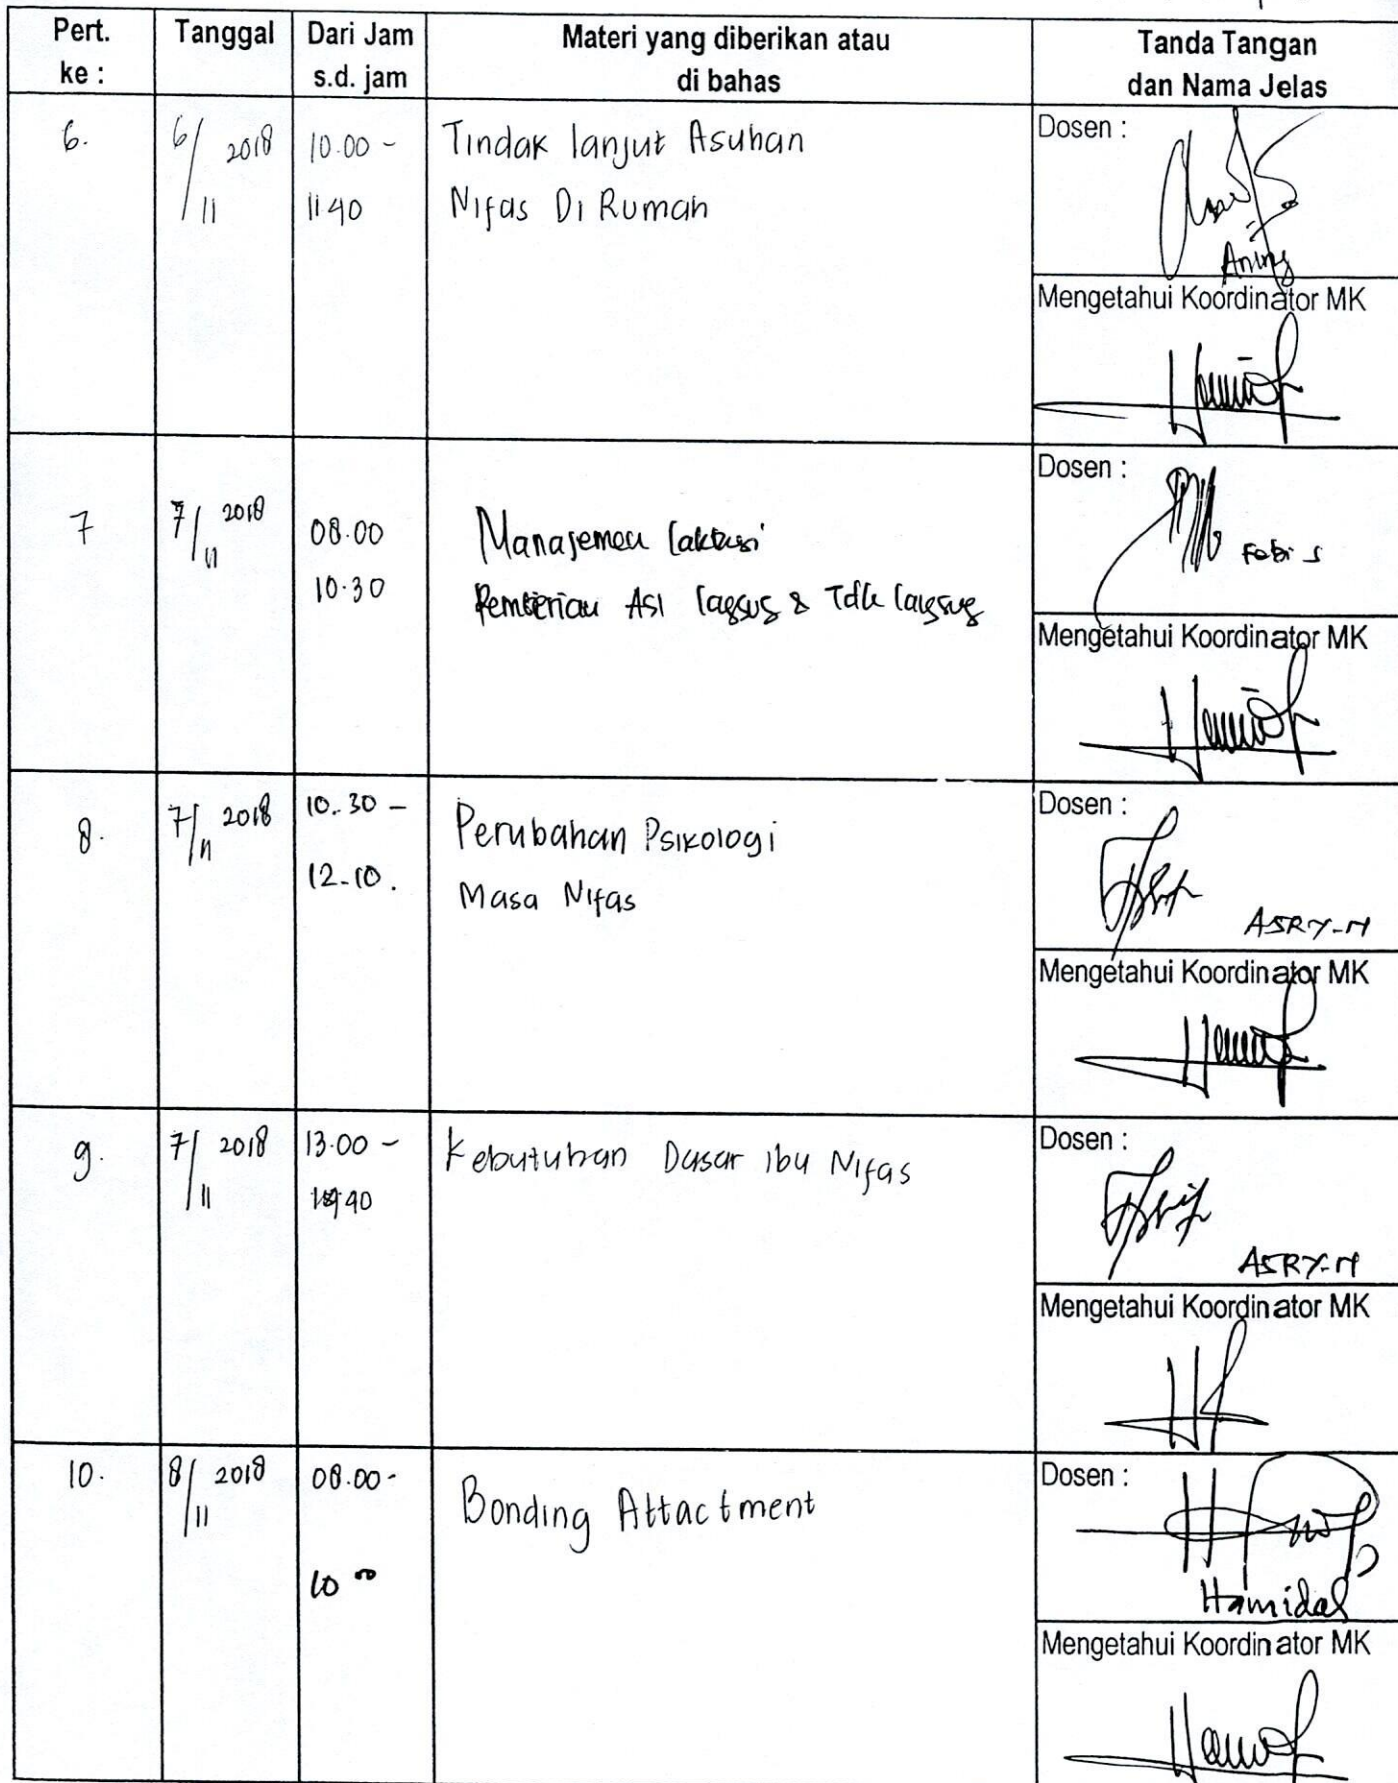 Pert. ke :
Tanggal
Dari Jam s.d. jam
Materi yang diberikan atau di bahas
Tanda Tangan dan Nama Jelas
6.
6/11 2018
10.00 -
11 40
Tindak lanjut Asuhan
Nifas Di Rumah
Dosen :
Aning
Mengetahui Koordinator MK
7
7/11 2018
08.00
10.30
Manajemen laktasi
Pemberian ASI lagsug & Tdk lagsug
Dosen :
Febi S
Mengetahui Koordinator MK
8.
7/11 2018
10.30 -
12.10.
Perubahan Psikologi
Masa Nifas
Dosen :
ASRY-M
Mengetahui Koordinator MK
9.
7/11 2018
13.00 -
40
Kebutuhan Dasar ibu Nifas
Dosen :
ASRY-M
Mengetahui Koordinator MK
10.
8/11 2018
08.00-
10 00
Bonding Attactment
Dosen :
Hamidah
Mengetahui Koordinator MK